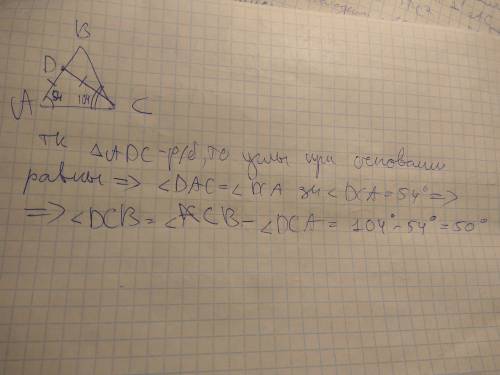 B
D
A 54 104 C
тк △ADC - р/б, то углы при основании
равны => ∠DAC = ∠DCA зн ∠DCA = 54° =>
=> ∠DCB = ∠ACB - ∠DCA = 104° - 54° = 50°